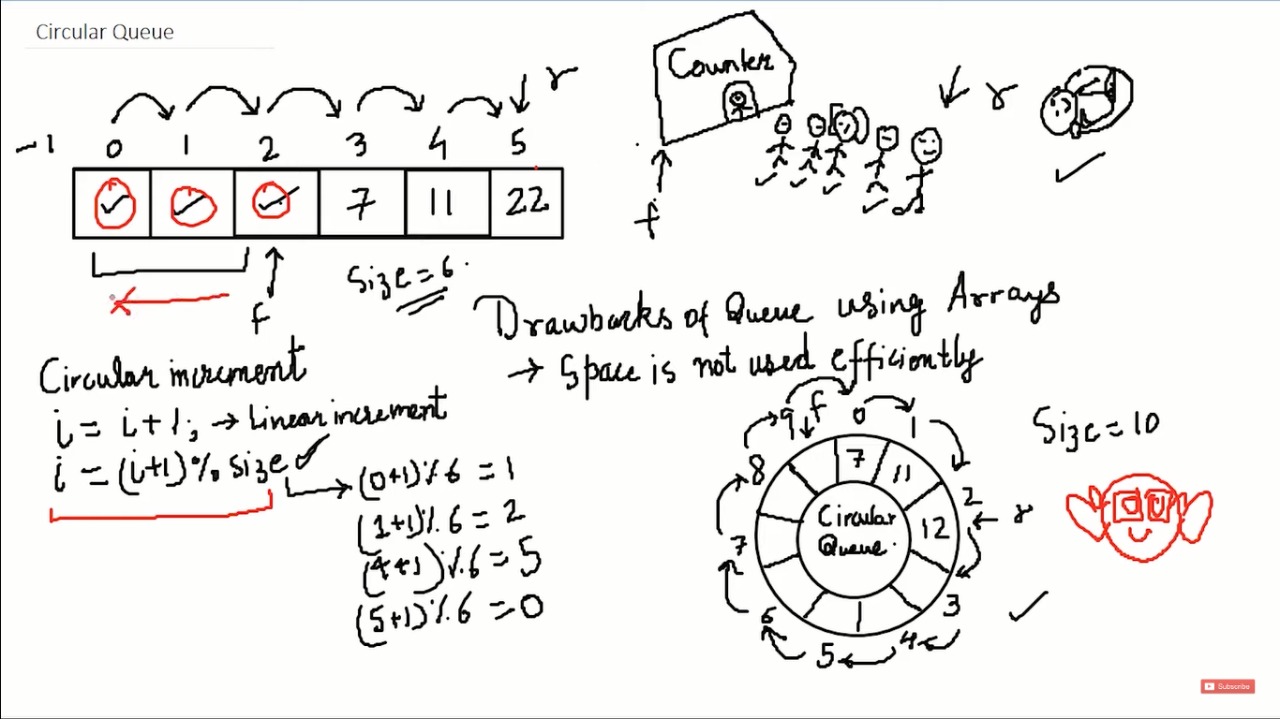 Circular Queue
r
-1 0 1 2 3 4 5
7 11 22
f
Size = 6
Counter
r
f
Drawbacks of Queue using Arrays
→ Space is not used efficiently
Circular increment
i = i+1; → Linear increment
i = (i+1)% size
(0+1)% 6 = 1
(1+1)% 6 = 2
(4+1)% 6 = 5
(5+1)% 6 = 0
9 f 0 1
8 7 11 2
12 r
Circular
Queue
7 3
6 5 4
Size = 10
Subscribe